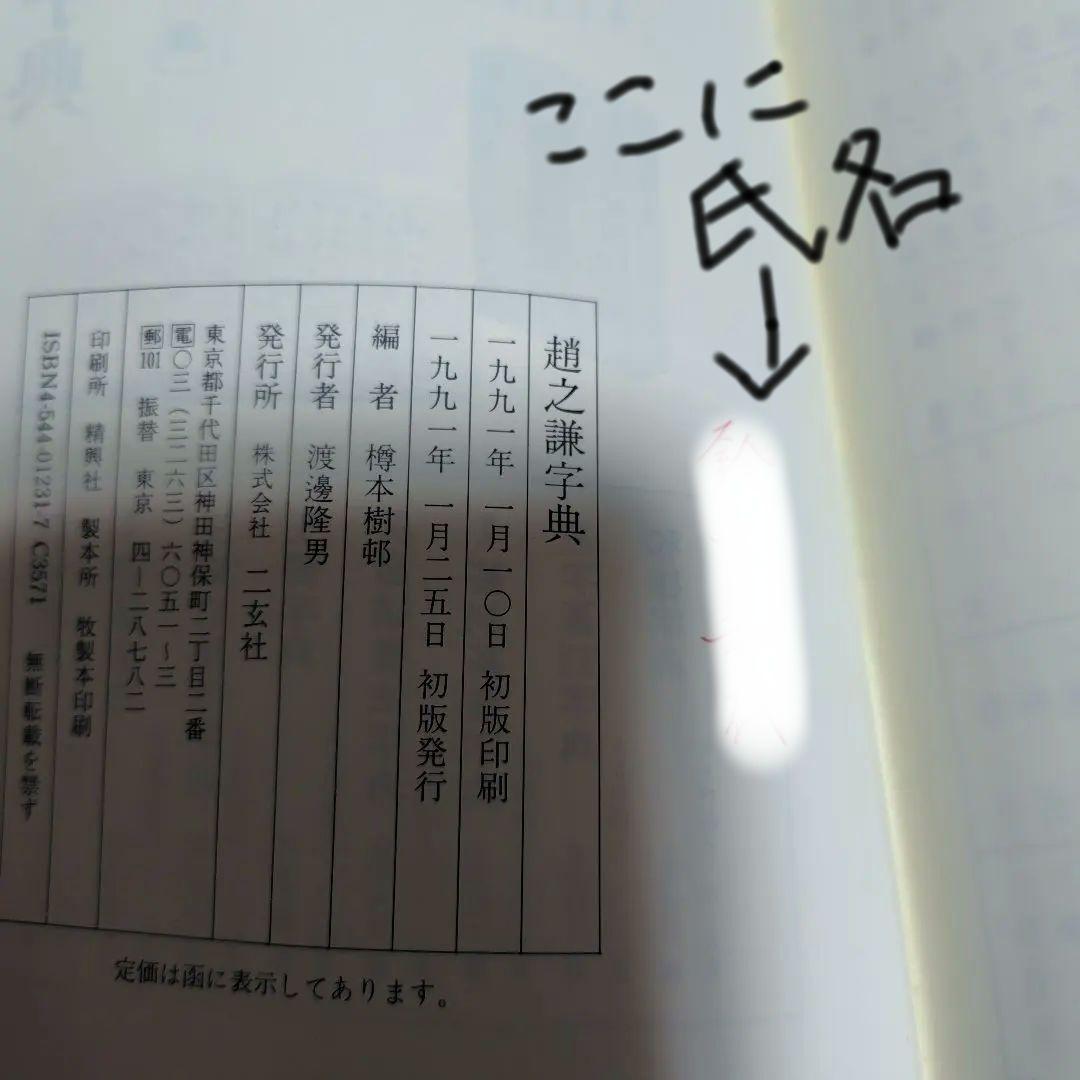 ここに
氏名
趙之謙字典
一九九一年 一月一〇日 初版印刷
一九九一年 一月二五日 初版発行
編者 樽本樹邨
発行者 渡邊隆男
発行所 株式会社 二玄社
東京都千代田区神田神保町二丁目二番
電〇三(三二六三)六〇五一〜三
郵101 振替 東京 四ー二八七八二
印刷所 精興社 製本所 牧製本印刷
ISBN4-544-01231-7 C3571 無断転載を禁ず
定価は函に表示してあります。